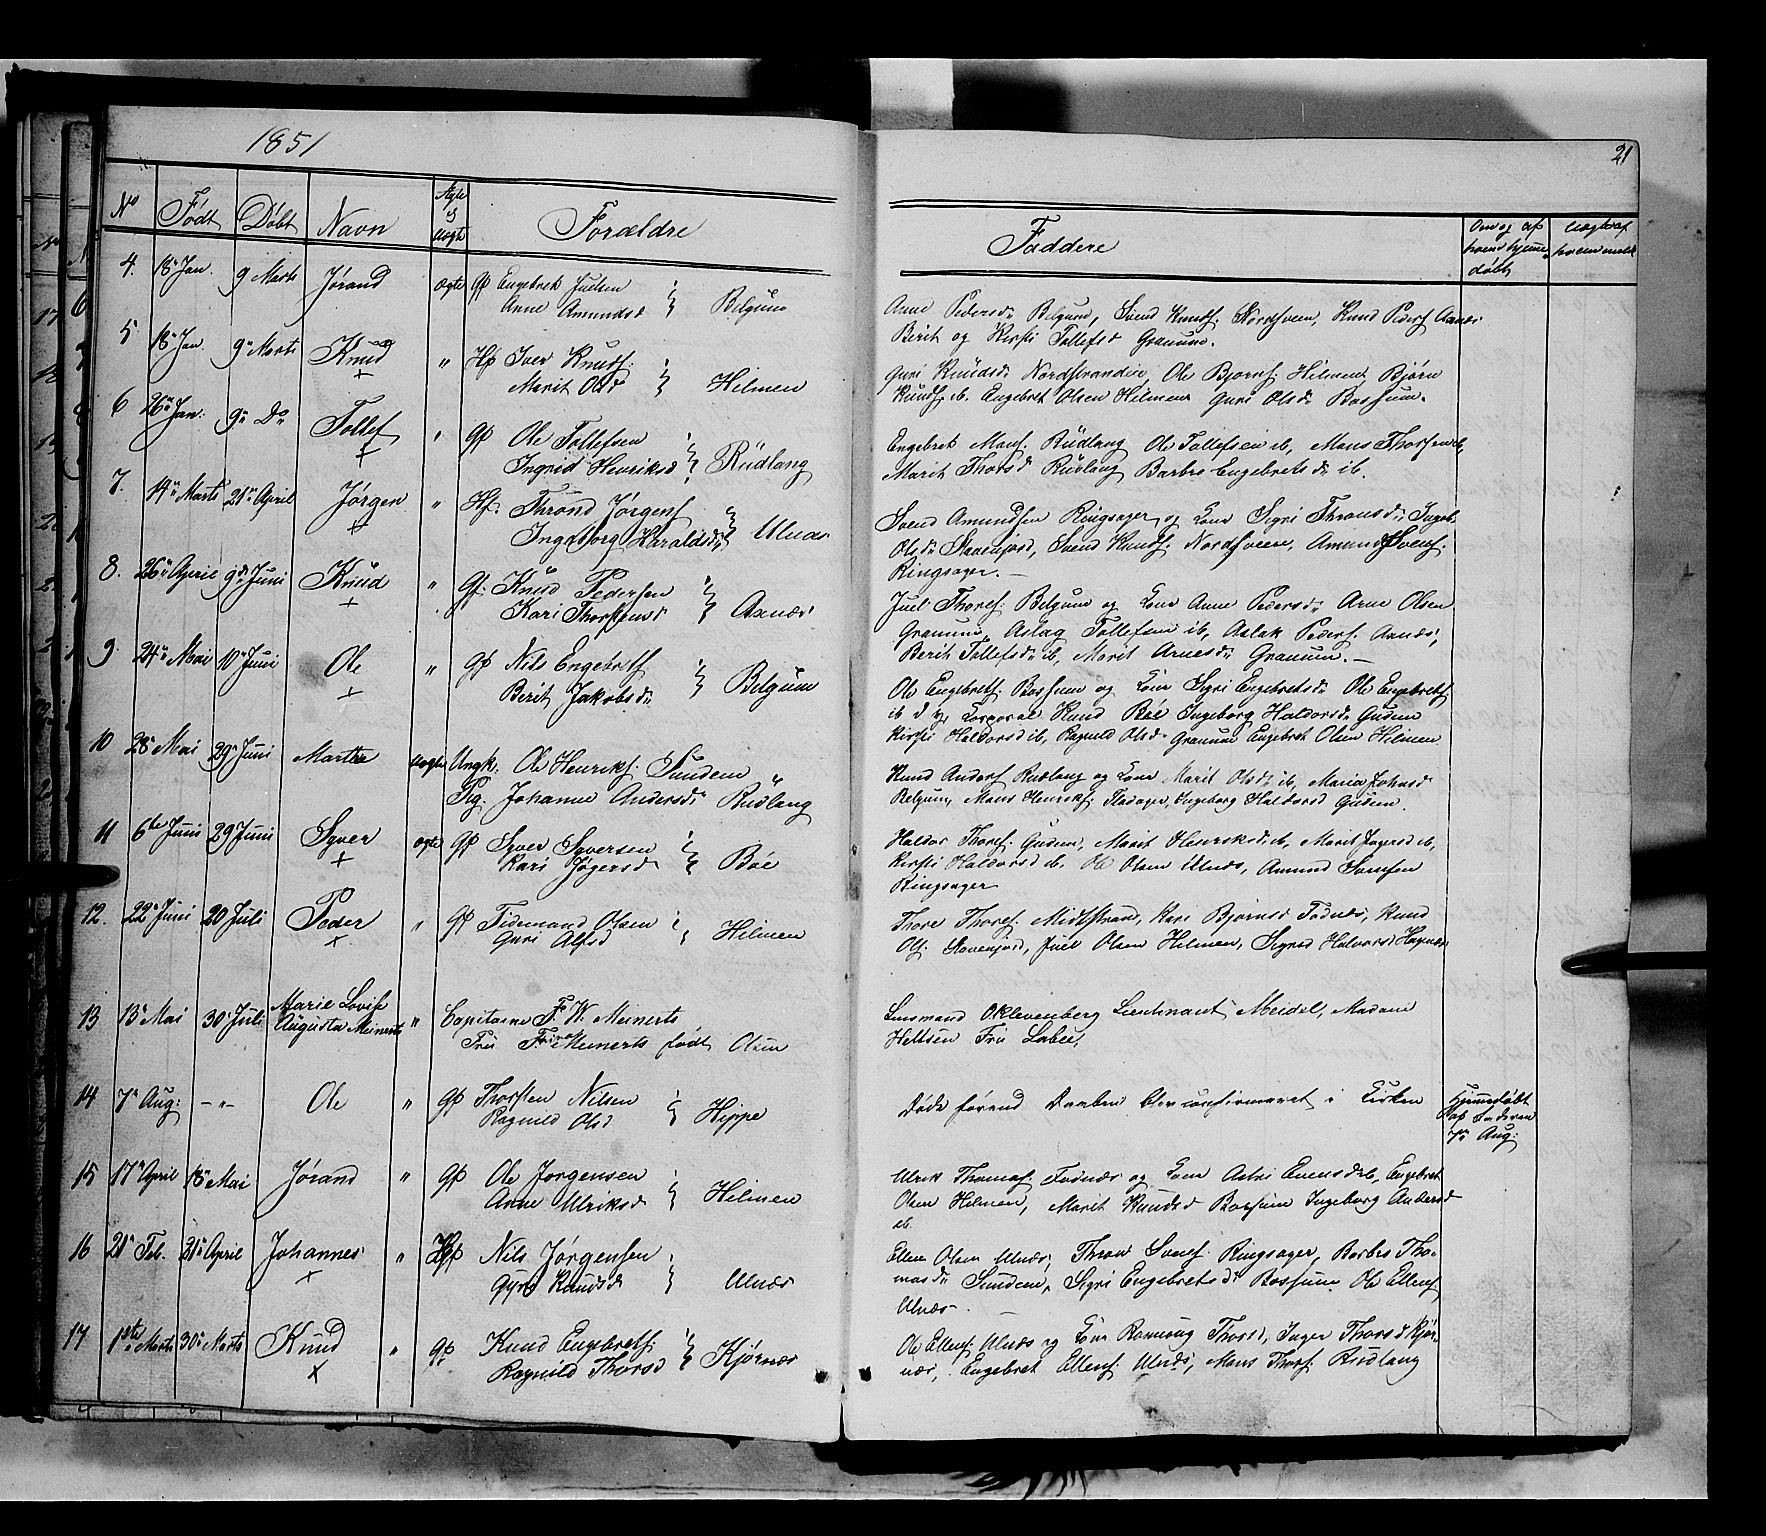 1851
21
No Født Døbt Navn Ægte og Uægte Forældre
Faddere
Om og af hvem hjemme- døbt
Uægte af hvem meldt
4. 18 Jan. 9 Marts Jørand ægte Gp Engebret Juelsen
Anne Amundsd Belgum
Anne Pedersd. Belgum, Svend Knuds. Nordsveen, Knud Peders Aanæs
Berit og Kirsti Tollefsd Granum.
5 18 Jan. 9 Marts Knud " Hp Iver Knuds.
+ Marit Olsd Hilmen
Guri Knudsd Nordstrandie, Ole Bjørns. Hilmen, Bjørn
Knuds. ib. Engebret Olsen Hilmen Guri Olsd. Bossum.
6 26 Jan. 9 Do Tollef " Gp Ole Tollefsen
+ Ingrid Henriksd Rudlang
Engebret Mons. Rudlang Ole Tollefsen ib, Mons Thorsen ib,
Marit Thorsd Rudlang Barbro Engebretsd. ib.
7. 14 Marts 21 April Jørgen " Hp. Thrond Jørgens
+ Ingeborg Haraldsd. Ulnæs
Svend Amundsen Ringsager og Kone Sigri Thronsd. Ingeb.
Olsd. Stavenjord, Svend Knuds. Nordsveen, Amund Svens.
Ringsager. —
8. 26 April 9d Juni Knud " Gp. Knud Pedersen
+ Kari Thorstensd Aanæs
Juel Thores. Belgum og Kone Anne Pedersd. Arne Olsen
Granum, Aslag Tollefsen ib, Aslak Peders. Aanæs,
Berit Tollefsd. ib, Marit Arnesd. Granum. —
9. 24 Mai 10 Juni Ole " Gp Nils Engebrets
+ Berit Jakobsd. Belgum
Ole Engebrets. Bossum og Kone Sigri Engebretsd. Ole Engebrets
ib d y, Corporal Knud Bøe Ingeborg Haldorsd. Gudem
Kirsti Haldorsd ib, Ragnild Olsd. Granum Engebret Olsen Hilmen
10 28 Mai 29 Juni Marthe uægte Ungk. Ole Henriks. Sundem
Pig. Johanne Andersd. Rudlang
Knud Anders Rudlang og Kone Marit Olsd. ib, Maria Johnsd
Belgum, Mons Henriks. Fladager, Ingeborg Haldorsd Gudem.
11 6te Juni 29 Juni Syver ægte Gp Syver Syversen
+ Kari Jøgersd Bøe
Haldor Thores. Gudem, Marit Henriksd. ib, Marit Jøgersd ib,
Kirsti Haldorsd ib. Ole Olsen Ulnæs, Amund Svensen
Ringsager
12. 22 Juni 20 Juli Peder " Gp Tidemand Olsen
+ Guri Alfsd Hilmen
Thore Thores. Midtstrand, Kari Bjørnsd Fodnæs, Knud
Ols. Stavenjord, Juel Olsen Hilmen, Sigrid Halvorsd Høgnæs
13 13 Mai 30 Juli Marie Lovise
Augusta Meinerts " Capitaine F. W. Meinerts
Fru Meinerts født Olsen
Lensmand O. Klevenberg Lieutenant Meidel, Madam
Heltsen Fru Labee,
14 7 Aug: — " — Ole " Gp Thorsten Nilsen
Ragnild Olsd Hippe
Døde førend Daaben blev confirmeret i Kirken
Hjemmedøbt
af Faderen
7 Aug:
15 17 April 18 Mai Jørand " Gp Ole Jørgensen
Anne Ulriksd Hilmen
Ulrik Thomas. Fodnæs og Kone Astri Evensd ib, Engebret
Olsen Hilmen, Marit Knudsd Bossum Ingeborg Andersd
ib.
16 21 Feb. 21 April Johannes " Hp Nils Jørgensen
+ Gyri Knudsd Ulnæs
Ellen Olsen Ulnæs, Thron Svens. Ringsager, Barbro Tho-
masd. Sundem, Sigri Engebretsd. Bossum, Ole Ellens,
Ulnæs.
17 1ste Marts 30 Marts Knud " Gp Knud Engebrets.
+ Ragnild Thorsd Kjørnæs
Ole Ellens. Ulnæs og Kone Ronnoug Thorsd, Inger Thorsd Kjør-
næs, Engebret Ellens. Ulnæs, Mons Thors. Rudlang